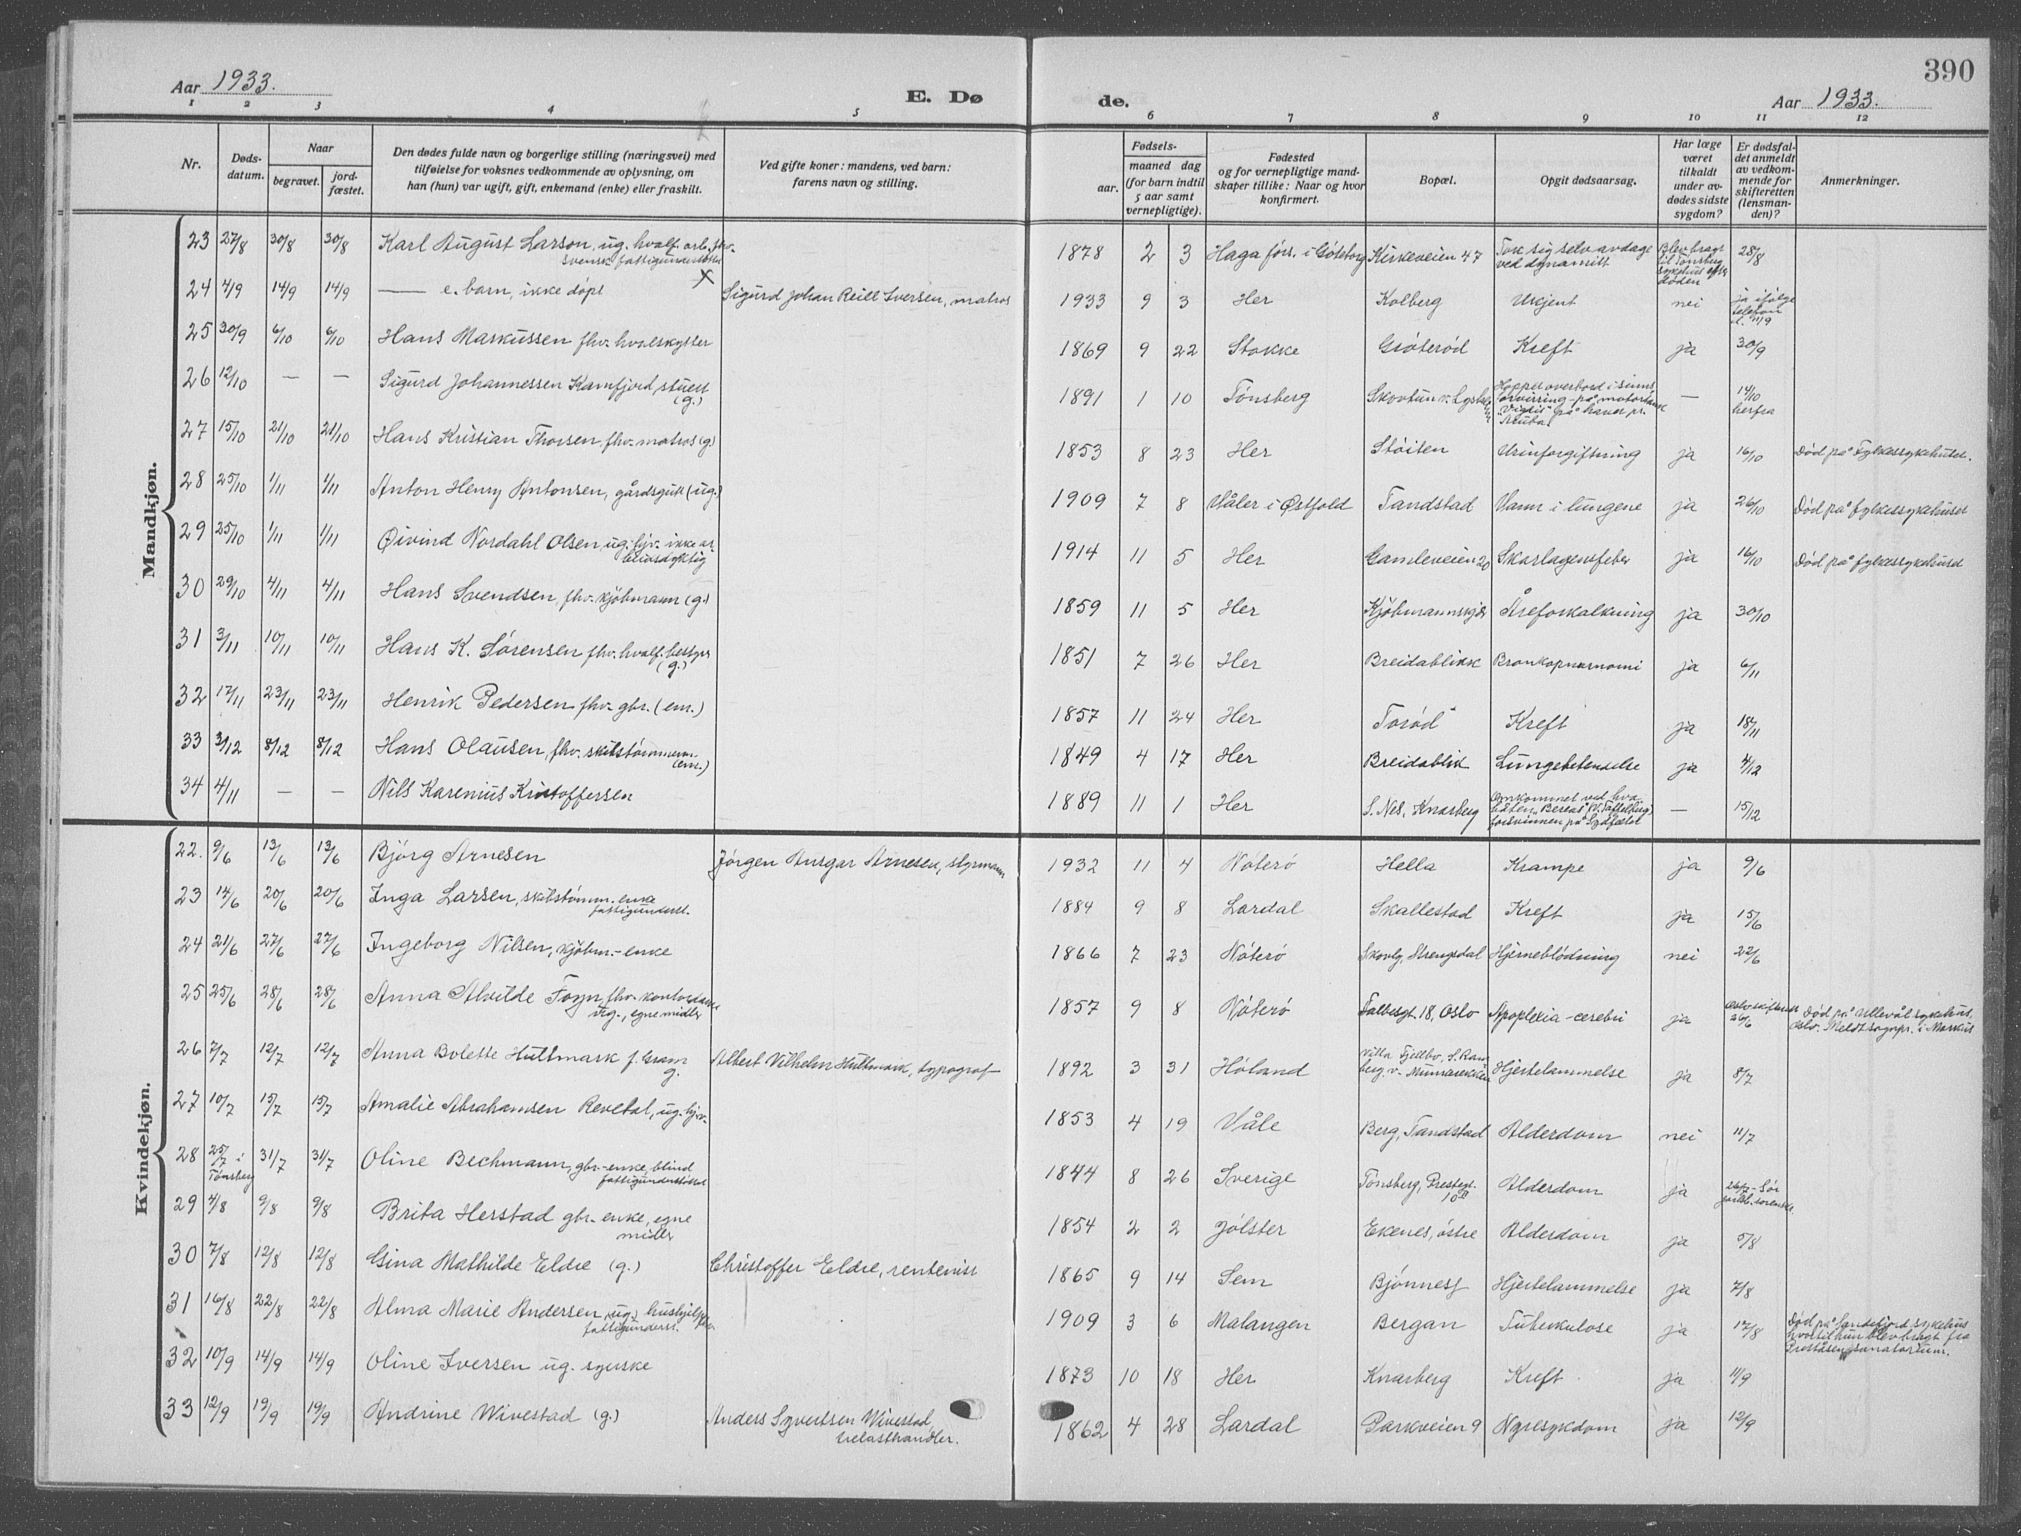 390
Aar 1933.
E. Dø
de.
Aar 1933.
1 2 3 4 5 6 7 8 9 10 11 12
Nr.
Døds-
datum.
Naar
begravet.
jord-
fæstet.
Den dødes fulde navn og borgerlige stilling (næringsvei) med
tilføielse for voksnes vedkommende av oplysning, om
han (hun) var ugift, gift, enkemand (enke) eller fraskilt.
Ved gifte koner: mandens, ved barn:
farens navn og stilling.
Fødsels-
aar.
maaned dag
(for barn indtil
5 aar samt
vernepligtige).
Fødested
og for vernepligtige mand-
skaper tillike: Naar og hvor
konfirmert.
Bopæl.
Opgit dødsaarsag.
Har læge
været
tilkaldt
under av-
dødes sidste
sygdom?
Er dødsfal-
det anmeldt
av vedkom-
mende for
skifteretten
(lensman-
den)?
Anmerkninger.
Mandkjøn.
23 27/8 30/8 30/8 Karl August Larson, ug. hvalf. arb. fhv. svensk fattigunderstøttet 1878 2 3 Haga förs. i Göteborg Kirkeveien 47 Tok sig selv avdage ved dynamitt Blev bragt til Tønsberg sykehus efter døden 28/8
24 4/9 14/9 14/9 —— e. barn, ikke døpt Sigurd Johan Reill Iversen, matros 1933 9 3 Her Kolberg Ukjent nei ja ifølge telefon 11/9
25 30/9 6/10 6/10 Hans Markussen fhv. hvalskytter 1869 9 22 Stokke Grøterød Kreft ja 30/9
26 12/10 — — Sigurd Johannessen Kamfjord, stuert (g.) 1891 1 10 Tønsberg Skovtun v. Hoppet overbord i sinnsforvirring på motortank "Vigdis" på havet pr. — 14/10 herfra
27 15/10 21/10 21/10 Hans Kristian Thorsen, fhv. matros (g) 1853 8 23 Her Støiten Urinforgiftning ja 16/10 Død på Fylkessykehuset.
28 25/10 1/11 1/11 Anton Henry Antonsen, gårdsgutt (ug.) 1909 7 8 Våler i Østfold Tandstad Vann i lungene ja 26/10 Død på fylkessykehuset
29 25/10 1/11 1/11 Øivind Nordahl Olsen, ug. hjv. ikke arbeidsdyktig 1914 11 5 Her Gamleveien 20 Skarlagensfeber ja 16/10 Død på fylkessykehuset
30 29/10 4/11 4/11 Hans Svendsen, fhv. kjøbmann (g.) 1859 11 5 Her Kjøbmannskjær Åreforkalkning ja 30/10
31 3/11 10/11 10/11 Hans K. Sørensen fhv. hvalf. bestyr (g.) 1851 7 26 Her Breidablikk Bronkopneumoni ja 6/11
32 17/11 23/11 23/11 Henrik Pedersen fhv. gbr. (em.) 1857 11 24 Her Torød Kreft ja 18/11
33 3/12 8/12 8/12 Hans Olausen, fhv. skibstømmerm. (em.) 1849 4 17 Her Breidablik Lungebetendelse ja 4/12
34 4/11 — — Nils Karenius Kristoffersen 1889 11 1 Her S. Nes, Knarberg Omkommet ved forsvinnen på Sydfeltet — 15/12
Kvindekjøn.
22. 9/6 13/6 13/6 Bjørg Arnesen Jørgen Ansgar Arnesen, styrmann 1932 11 4 Nøterø Hella Krampe ja 9/6
23 14/6 20/6 20/6 Inga Larsen, skibstømm. enke fattigunderst. 1884 9 8 Lardal Skallestad Kreft ja 15/6
24 21/6 27/6 27/6 Ingeborg Nilsen, kjøbm.-enke 1866 7 23 Nøterø Skovly, Strengsdal Hjerneblødning nei 22/6
25 25/6 28/6 28/6 Anna Alvilde Foyn, fhv. kontordame ug., egne midler 1857 9 8 Nøterø Falbesgt. 18, Oslo Apoplexia-cerebri ja Oslo skifterett 26/6 Død på Ullevål sykehus, Oslo. Meldt sognepr. i Markus
26 7/7 12/7 12/7 Anna Bolette Hultmark f. Gram g. Albert Vilhelm Hultmark, typograf 1892 3 31 Høland Villa Fjellbo, S. Ramberg v. Munkerekkeien Hjertelammelse ja 8/7
27 10/7 15/7 15/7 Amalie Abrahamsen Revetal, ug. hjv. 1853 4 19 Våle Berg, Tandstad Alderdom nei 11/7
28 25/7 i Tønsberg 31/7 31/7 Oline Bechmann, gbr.-enke, blind fattigunderstøttet 1844 8 26 Sverige Tønsberg, Prestegt. 10B Alderdom ja 26/7
29 4/8 9/8 9/8 Brita Herstad gbr.-enke, egne midler 1854 2 2 Jølster Ekenes, østre Alderdom ja 5/8
30 7/8 12/8 12/8 Gina Mathilde Eldre (g.) Christoffer Eldre, rentenist 1865 9 14 Sem Bjønnes Hjertelammelse ja 7/8
31 16/8 22/8 22/8 Alma Marie Andersen, ug. hushjelp fattigunderst. 1909 3 6 Malangen Bergan Tuberkulose ja 17/8 Død på Sandefjord sykehus hvortil hun blev bragt fra Preståsen sanatorium.
32 10/9 14/9 14/9 Oline Iversen ug. syerske 1873 10 18 Her Knarberg Kreft ja 11/9
33 12/9 19/9 19/9 Andrine Wivestad (g.) Anders Syvertsen Wivestad, trelasthandler. 1862 4 28 Lardal Parkveien 9 Nyresykdom ja 12/9